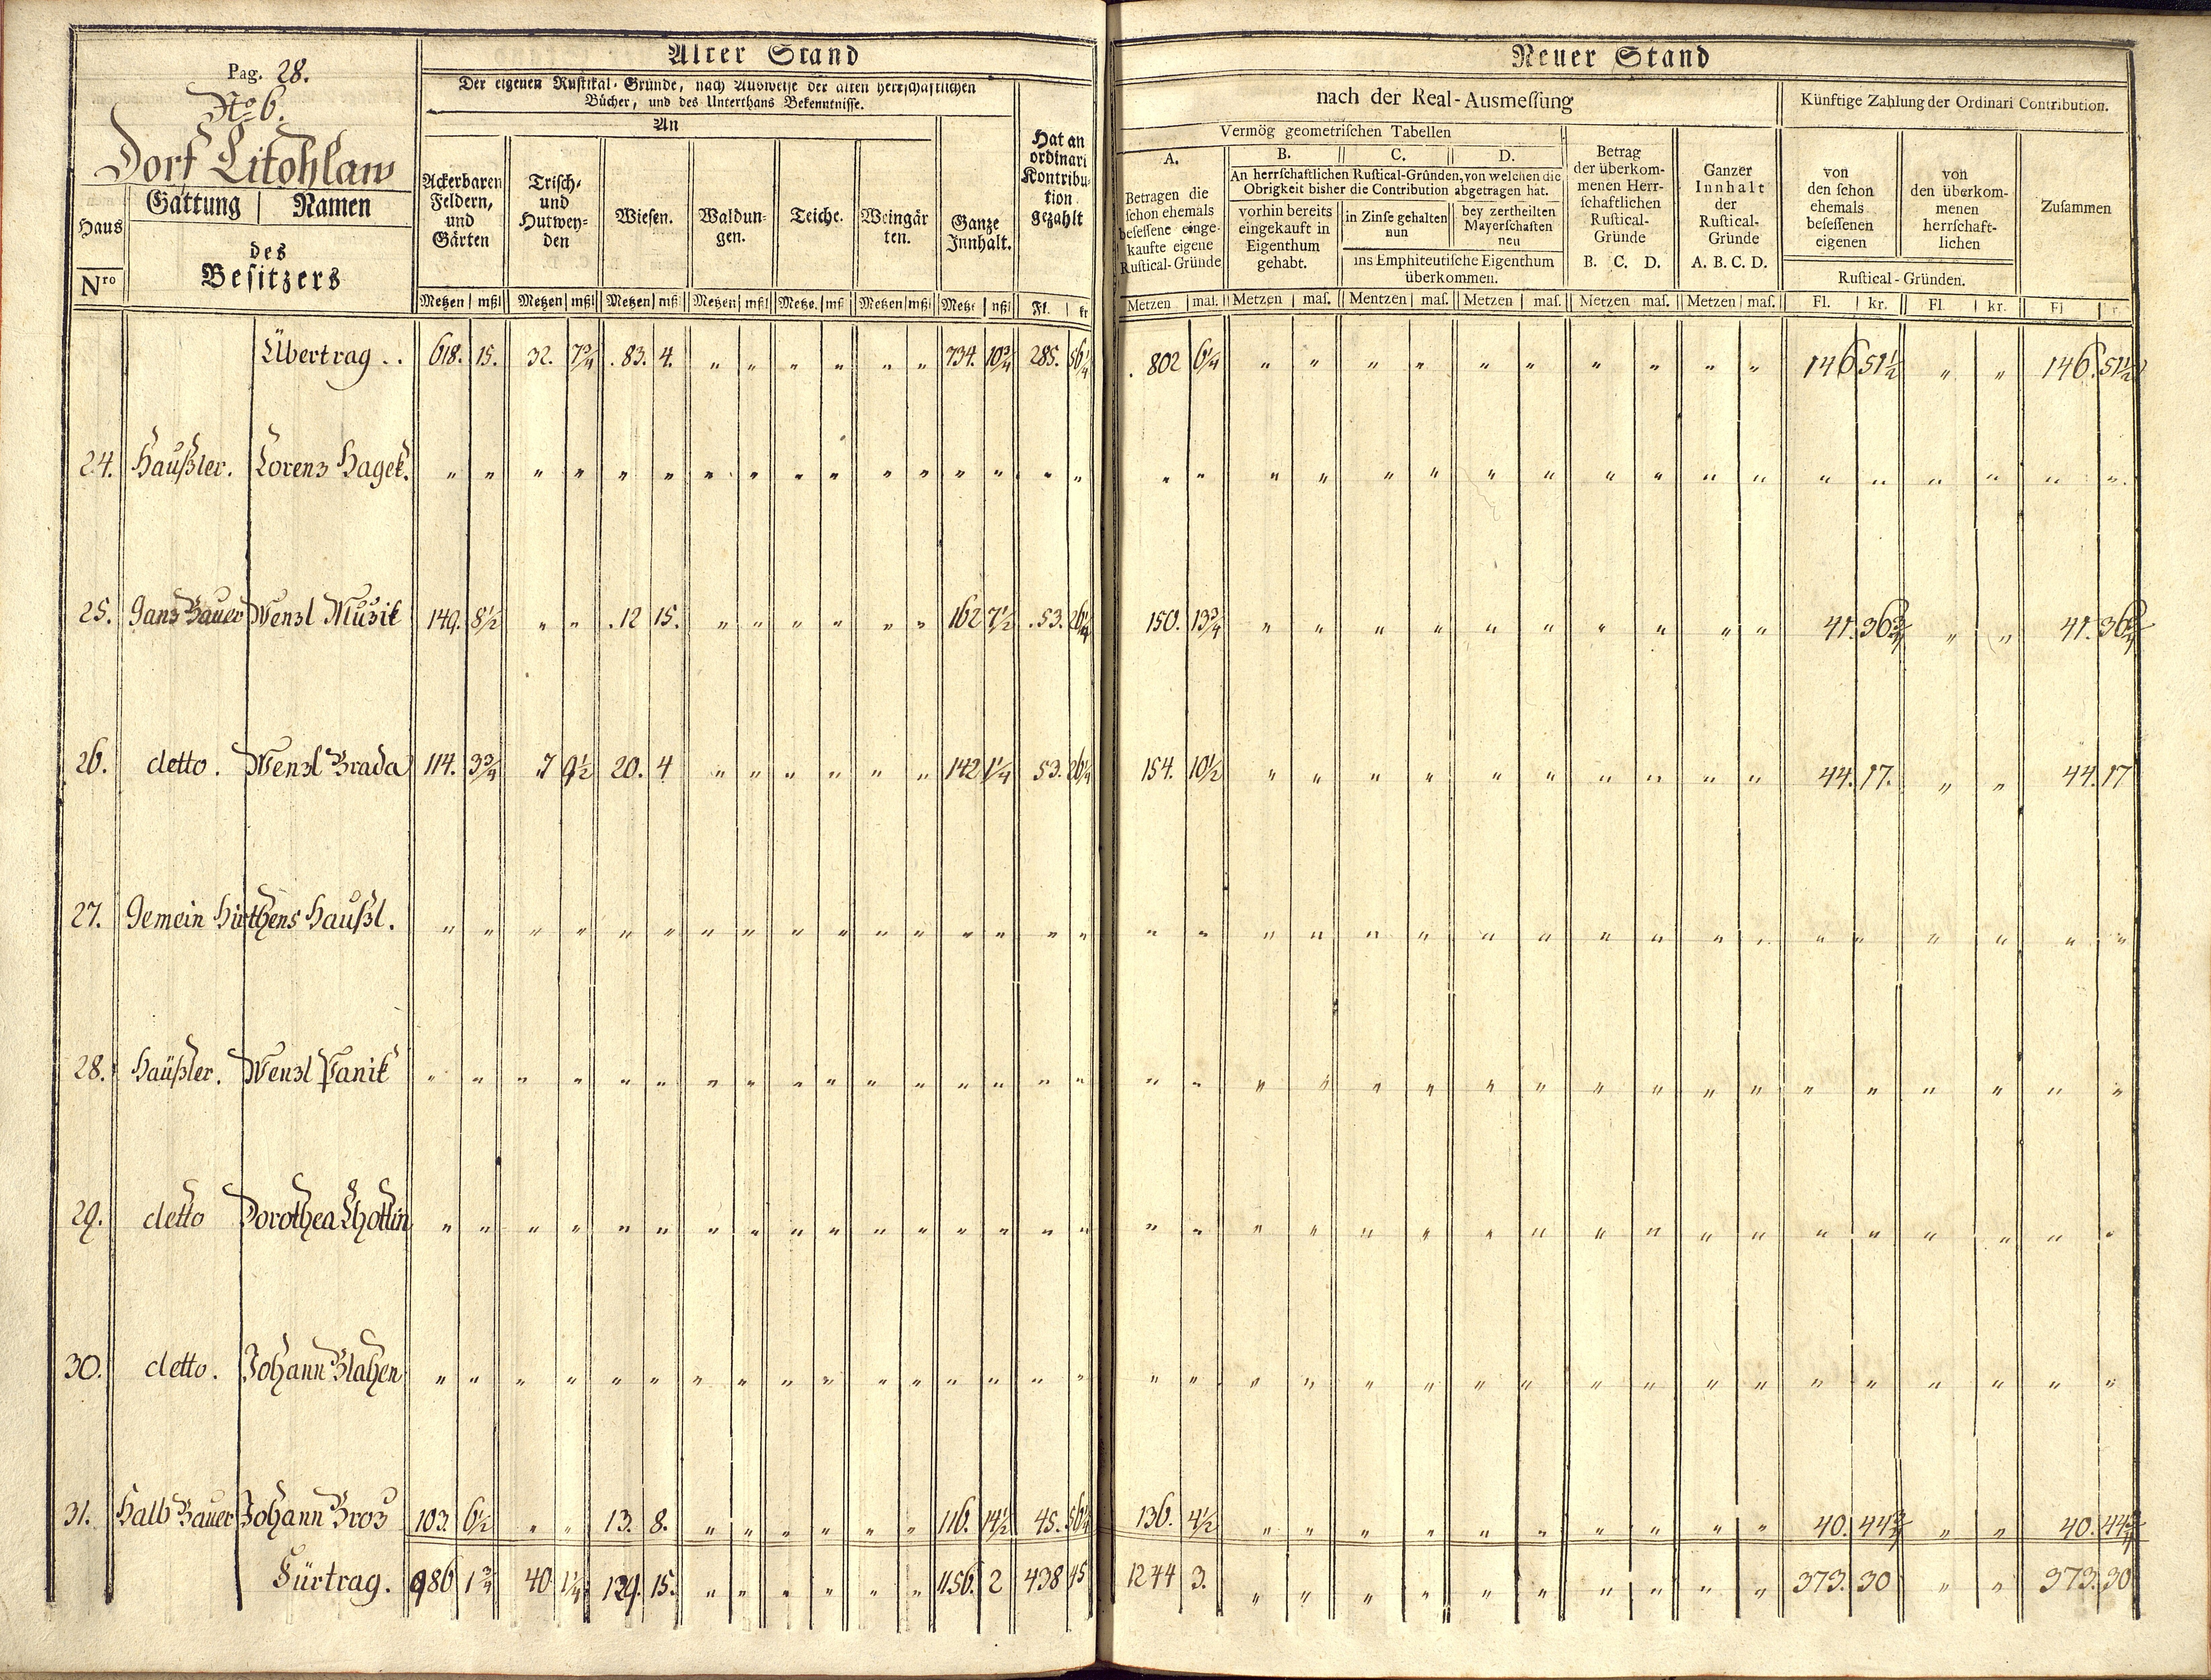 Pag. 28.
No 6.
Dorf Litohlaw
Haus
Nro
Gattung | Namen
des
Besitzers
Alter Stand
Der eigenen Rustikal-Gründe, nach Ausweise der alten herrschaftlichen
Bücher, und des Unterthans Bekenntnisse.
An
Ackerbaren
Feldern,
und
Gärten
Trisch-
und
Hutwey-
den
Wiesen.
Waldun-
gen.
Teiche.
Weingär
ten.
Ganze
Innhalt.
Hat an
ordinari
Kontribu-
tion
gezahlt
Metzen | mßl Metzen | mßl Metzen | mßl Metzen | mßl Metze. | mß Metzen | mßl Metze | mßl Fl. | kr
Neuer Stand
nach der Real-Ausmeſſung
Künftige Zahlung der Ordinari Contribution.
Vermög geometriſchen Tabellen
A.
Betragen die
ſchon ehemals
beſeſſene einge-
kaufte eigene
Ruſtical-Gründe
B. C. D.
An herrſchaftlichen Ruſtical-Gründen, von welchen die
Obrigkeit bisher die Contribution abgetragen hat.
vorhin bereits
eingekauft in
Eigenthum
gehabt.
in Zinſe gehalten
nun
bey zertheilten
Mayerſchaften
neu
ins Emphiteutiſche Eigenthum
überkommen.
Betrag
der überkom-
menen Herr-
ſchaftlichen
Ruſtical-
Gründe
B. C. D.
Ganzer
Innhalt
der
Ruſtical-
Gründe
A. B. C. D.
von
den ſchon
ehemals
beſeſſenen
eigenen
von
den überkom-
menen
herrſchaft-
lichen
Ruſtical-Gründen.
Zuſammen
Metzen | maſ. Metzen | maſ. Mentzen | maſ. Metzen | maſ. Metzen maſ. Metzen | maſ. Fl. | kr. Fl. | kr. Fl
Übertrag . . 618. 15. 32. 7 3/4 . 83. 4. " " " " " " 734. 10 3/4 285. 56 1/4 . 802 6 1/4 " " " " " " " " " " 146 51 1/2 " " 146. 51 1/2
24. Haußler. Lorenz Hagek. " " " " " " " " " " " " " " " " " " " " " " " " " " " " " " " " " "
25. Ganz Bauer Wenzl Muzik 149. 8 1/2 " " . 12 15. " " " " " " 162 7 1/2 . 53. 26 1/4 150. 13 3/4 " " " " " " " " " " 41. 36 3/4 " " 41. 36 3/4
26. detto. Wenzl Brada 114. 3 3/4 . 7 9 1/2 20. 4 " " " " " " 142 1 1/4 53. 26 1/4 154. 10 1/2 " " " " " " " " " " 44. 17. " " 44. 17
27. Gemein Hirthens Haußl. " " " " " " " " " " " " " " " " " " " " " " " " " " " " " " " " " "
28. Haüßler. Wenzl Panik " " " " " " " " " " " " " " " " " " " " " " " " " " " " " " " " " "
29. detto Dorothea Lhottin " " " " " " " " " " " " " " " " " " " " " " " " " " " " " " " " " "
30. detto. Johann Blahen " " " " " " " " " " " " " " " " " " " " " " " " " " " " " " " " " "
31. Halb Bauer Johann Broz 103. 6 1/2 " " 13. 8. " " " " " " 116. 14 1/2 45. 56 1/4 136. 4 1/2 " " " " " " " " " " 40. 44 3/4 " " 40. 44 3/4
Fürtrag. 986 1 3/4 40 1 1/4 129. 15. " " " " " " 1156. 2 438 45 1244 3. " " " " " " " " " " 373. 30 " " 373. 30